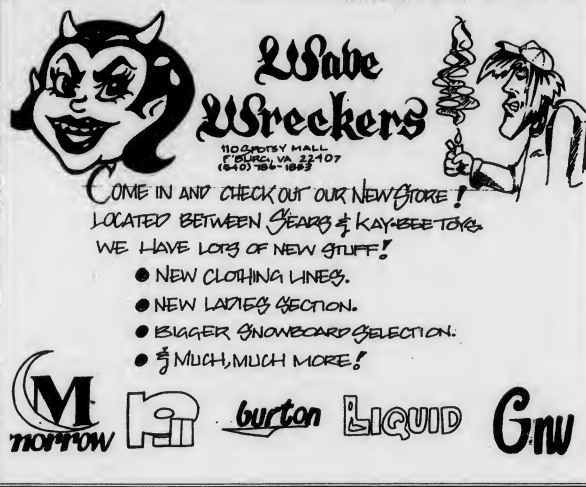 Wave
Wreckers
110 SPOTSY MALL
F'BURG, VA 22407
(540) 786-1863
COME IN AND CHECK OUT OUR NEW STORE!
LOCATED BETWEEN SEARS & KAY-BEE TOYS.
WE HAVE LOTS OF NEW STUFF!
• NEW CLOTHING LINES.
• NEW LADIES SECTION.
• BIGGER SNOWBOARD SELECTION.
• & MUCH, MUCH MORE!
M
morrow
burton
LIQUID
Gnu